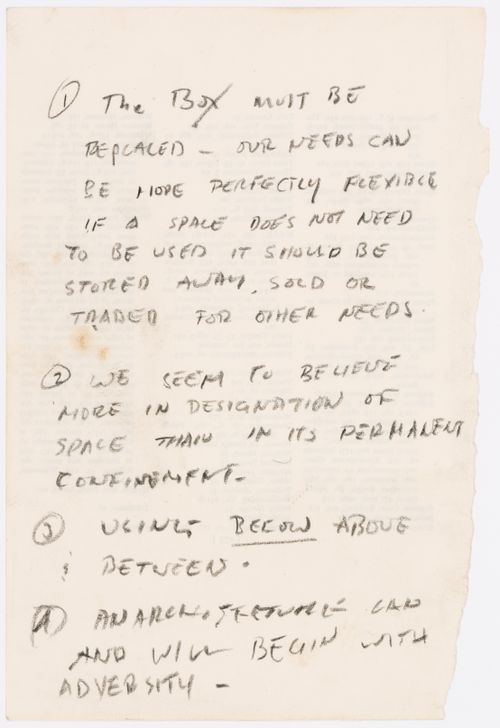 ① The BOX MUST BE
REPLACED – OUR NEEDS CAN
BE MORE PERFECTLY FLEXIBLE
IF A SPACE DOES NOT NEED
TO BE USED IT SHOULD BE
STORED AWAY, SOLD OR
TRADED FOR OTHER NEEDS.
② WE SEEM TO BELIEVE
MORE IN DESIGNATION OF
SPACE THAN IN ITS PERMANENT
CONFINEMENT –
③ USING BELOW ABOVE
& BETWEEN.
④ ANARCHITECTURE CAN
AND WILL BEGIN WITH
ADVERSITY –